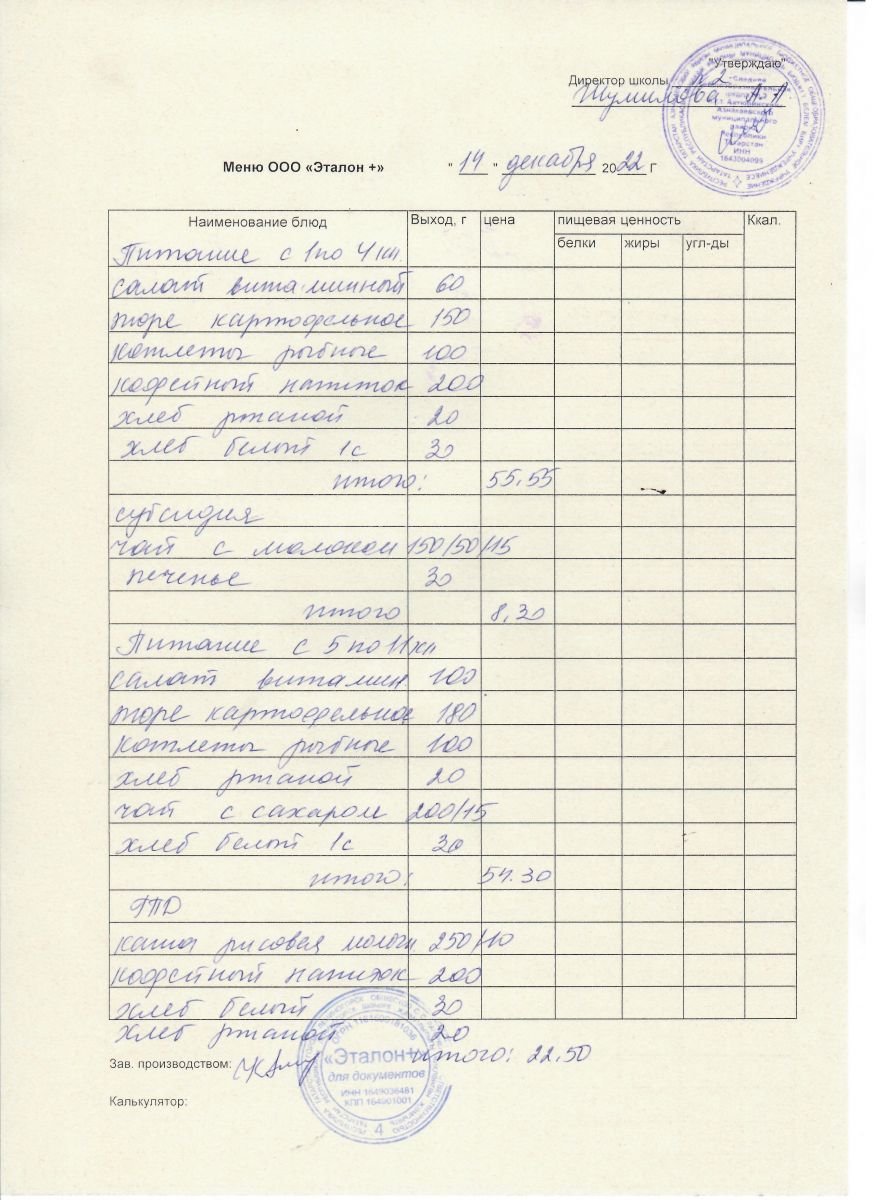 "Утверждаю"
Директор школы №2
Шумилова А.Л
Меню ООО «Эталон +» "14" декабря 2022 г
Наименование блюд Выход, г цена пищевая ценность Ккал.
белки жиры угл-ды
Питание с 1 по 4 кл.
салат витаминный 60
пюре картофельное 150
котлеты рыбные 100
кофейный напиток 200
хлеб ржаной 20
хлеб белый 1с 30
итого: 55.55
субсидия
чай с молоком 150/50/15
печенье 30
итого 8,30
Питание с 5 по 11 кл
салат витамин 100
пюре картофельное 180
котлеты рыбные 100
хлеб ржаной 20
чай с сахаром 200/15
хлеб белый 1с 30
итого: 54.30
ГПД
каша рисовая молочн 250/10
кофейный напиток 200
хлеб белый 30
хлеб ржаной 20
Зав. производством: итого: 22.50
Калькулятор:
«Эталон+»
для документов
ИНН 1649036481
КПП 164901001
4